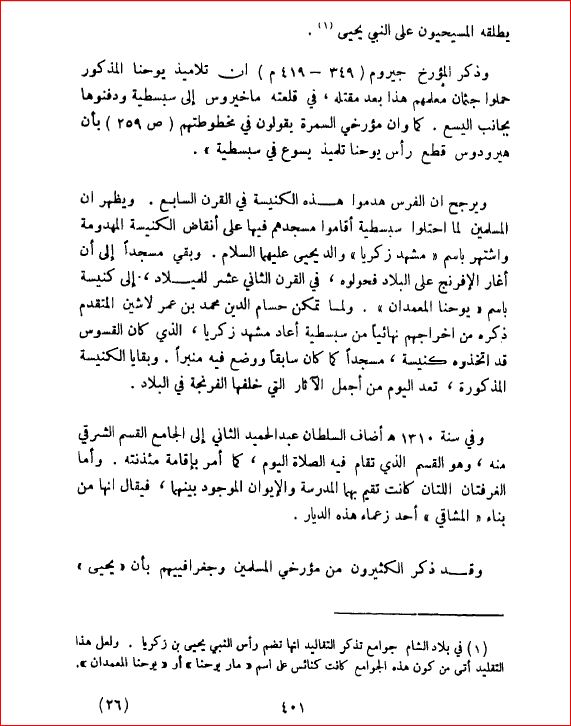 يطلقه المسيحيون على النبي يحيى (١) .
وذكر المؤرخ جيروم ( ٣٤٩ – ٤١٩ م ) ان تلاميذ يوحنا المذكور
حملوا جثمان معلمهم هذا بعد مقتله ، في قلعته ماخيروس إلى سبسطية ودفنوها
بجانب اليسع . كما وان مؤرخي السمرة يقولون في مخطوطتهم ( ص ٢٥٩ ) بأن
هيرودوس قطع رأس يوحنا تلميذ يسوع في سبسطية » .
ويرجح ان الفرس هدموا هـــذه الكنيسة في القرن السابع . ويظهر ان
المسلمين لما احتلوا سبسطية أقاموا مسجدهم فيها على أنقاض الكنيسة المهدومة
واشتهر باسم « مشهد زكريا » والد يحيى عليهما السلام . وبقي مسجداً إلى أن
أغار الإفرنج على البلاد فحولوه ، في القرن الثاني عشر للميـــلاد ، إلى كنيسة
باسم « يوحنا المعمدان » . ولمــا تمكن حسام الدين محمد بن عمر لاشين المتقدم
ذكره من اخراجهم نهائياً من سبسطية أعاد مشهد زكريا ، الذي كان القسوس
قد اتخذوه كنيسة ، مسجداً كما كان سابقاً ووضع فيه منبراً . وبقايا الكنيسة
المذكورة ، تعد اليوم من أجمل الآثار التي خلفها الفرنجة في البلاد .
وفي سنة ١٣١٠ ه أضاف السلطان عبدالحميد الثاني إلى الجامع القسم الشرقي
منه ، وهو القسم الذي تقام فيه الصلاة اليوم ، كما أمر بإقامة مئذنته . وأما
الغرفتان اللتان كانت تقيم بهما المدرسة والإيوان الموجود بينهما ، فيقال انها من
بناء « المشاقي » أحد زعماء هذه الديار .
وقـــد ذكر الكثيرون من مؤرخي المسلمين وجغرافييهم بأن « يحيى »
(١) في بلاد الشام جوامع تذكر التقاليد انها تضم رأس النبي يحيى بن زكريا . ولعل هذا
التقليد أتى من كون هذه الجوامع كانت كنائس على اسم « مار يوحنا » أو « يوحنا المعمدان ».
٤٠١
(٢٦)